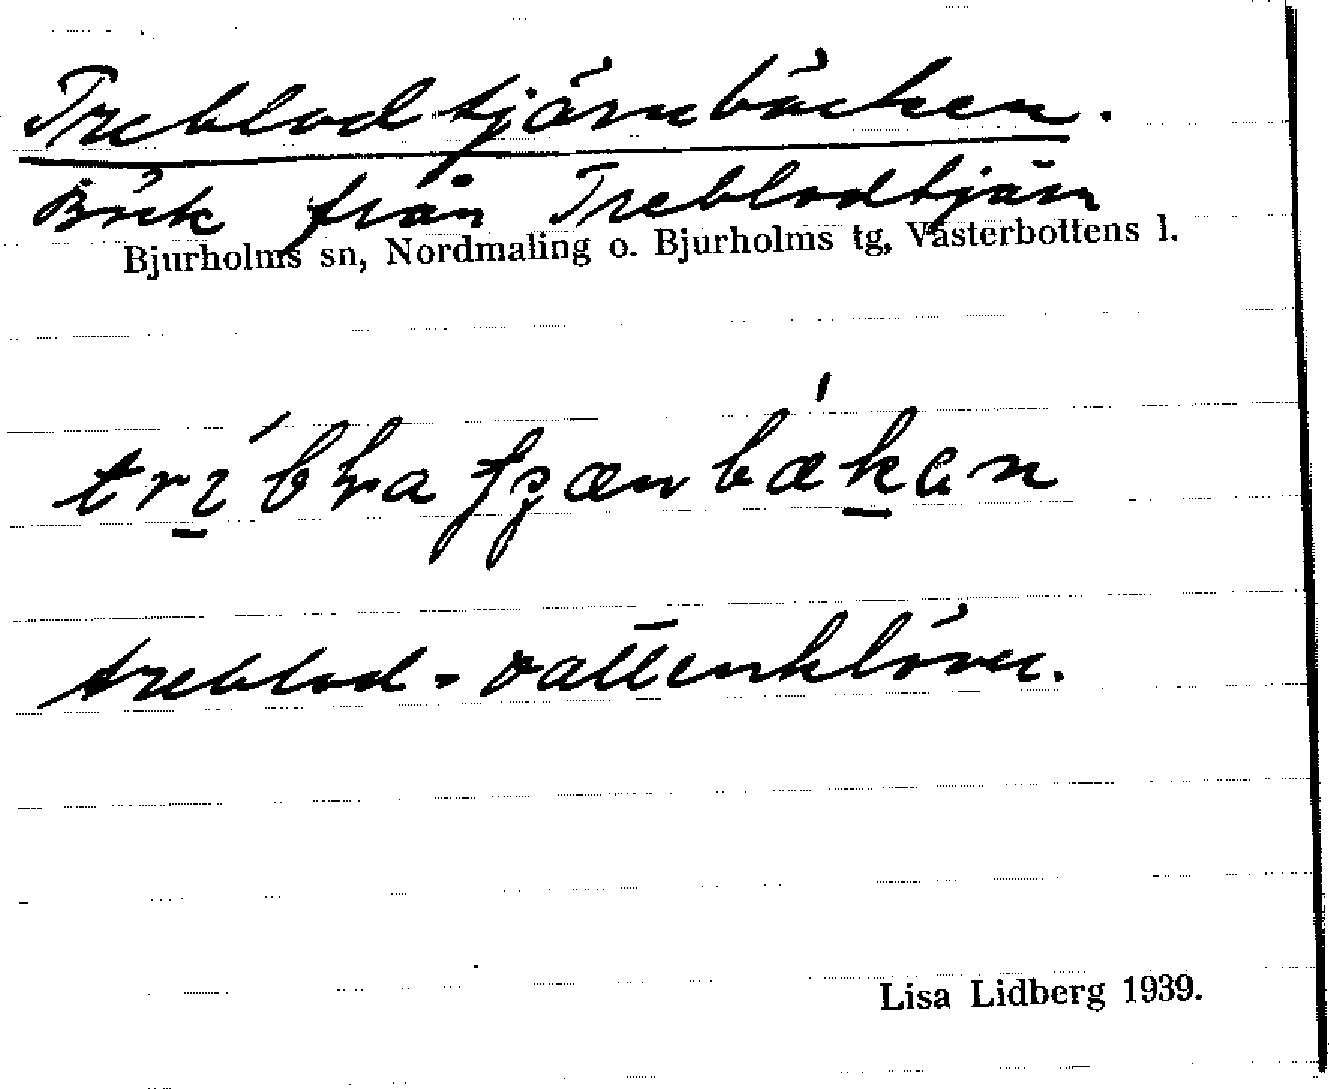 Treblodtjärnbäcken.
Bäck från Treblodtjärn
Bjurholms sn, Nordmaling o. Bjurholms tg, Västerbottens l.
treblod - vattenklöver.
Lisa Lidberg 1939.